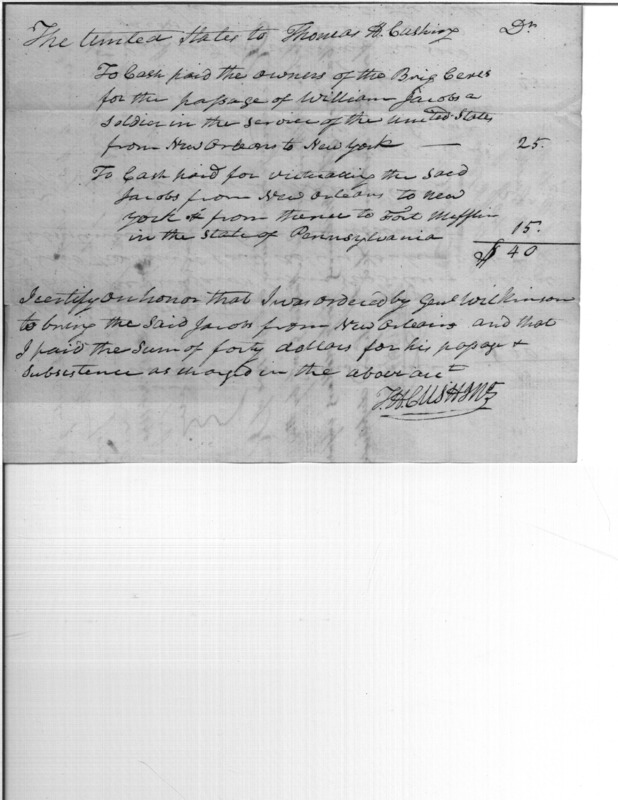 The United States to Thomas H. Cushing Dr
To Cash paid the owners of the Brig Ceres
for the passage of William Jacobs a
soldier in the service of the United States
from New Orleans to New York — 25.
To Cash paid for victualling the said
Jacobs from New Orleans to New
York & from thence to Fort Mifflin
in the State of Pennsylvania 15.
$ 40
I certify on honor that I was ordered by Genl Wilkinson
to bring the said Jacobs from New Orleans and that
I paid the sum of forty dollars for his passage &
subsistence as charged in the above acct
T. H. Cushing